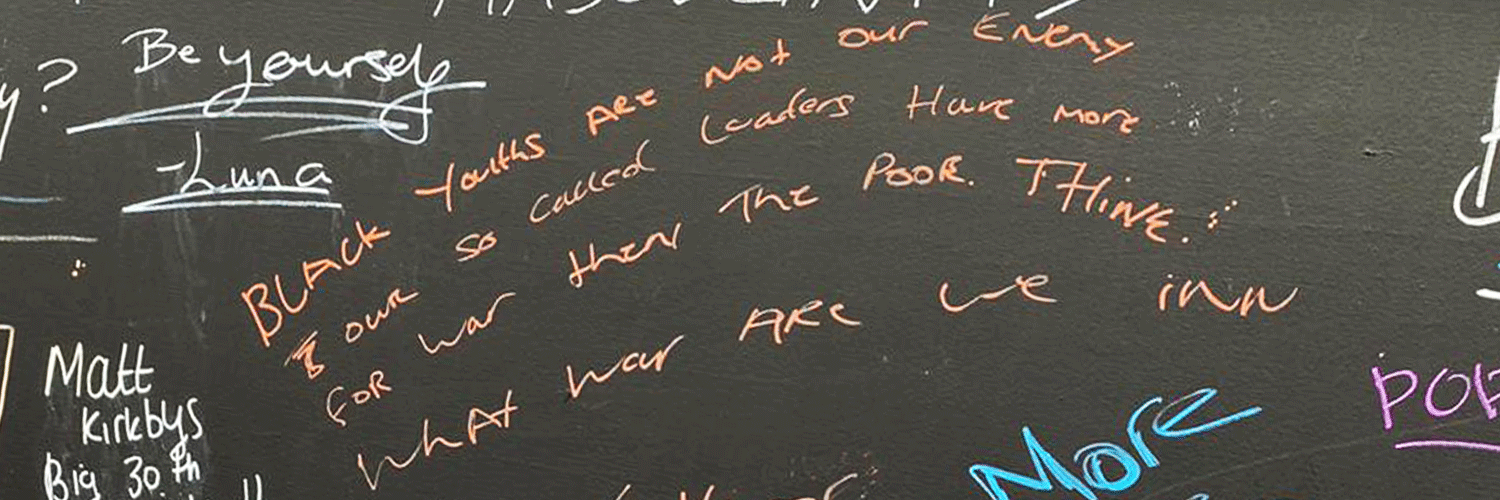 Be yourself
-Luna
BLACK Youths ARE Not our Enemy
our so called Leaders Have more
FOR war then The POOR. THINK.
WhAt war ARE we inn
Matt
Kirkbys
Big 30th
More